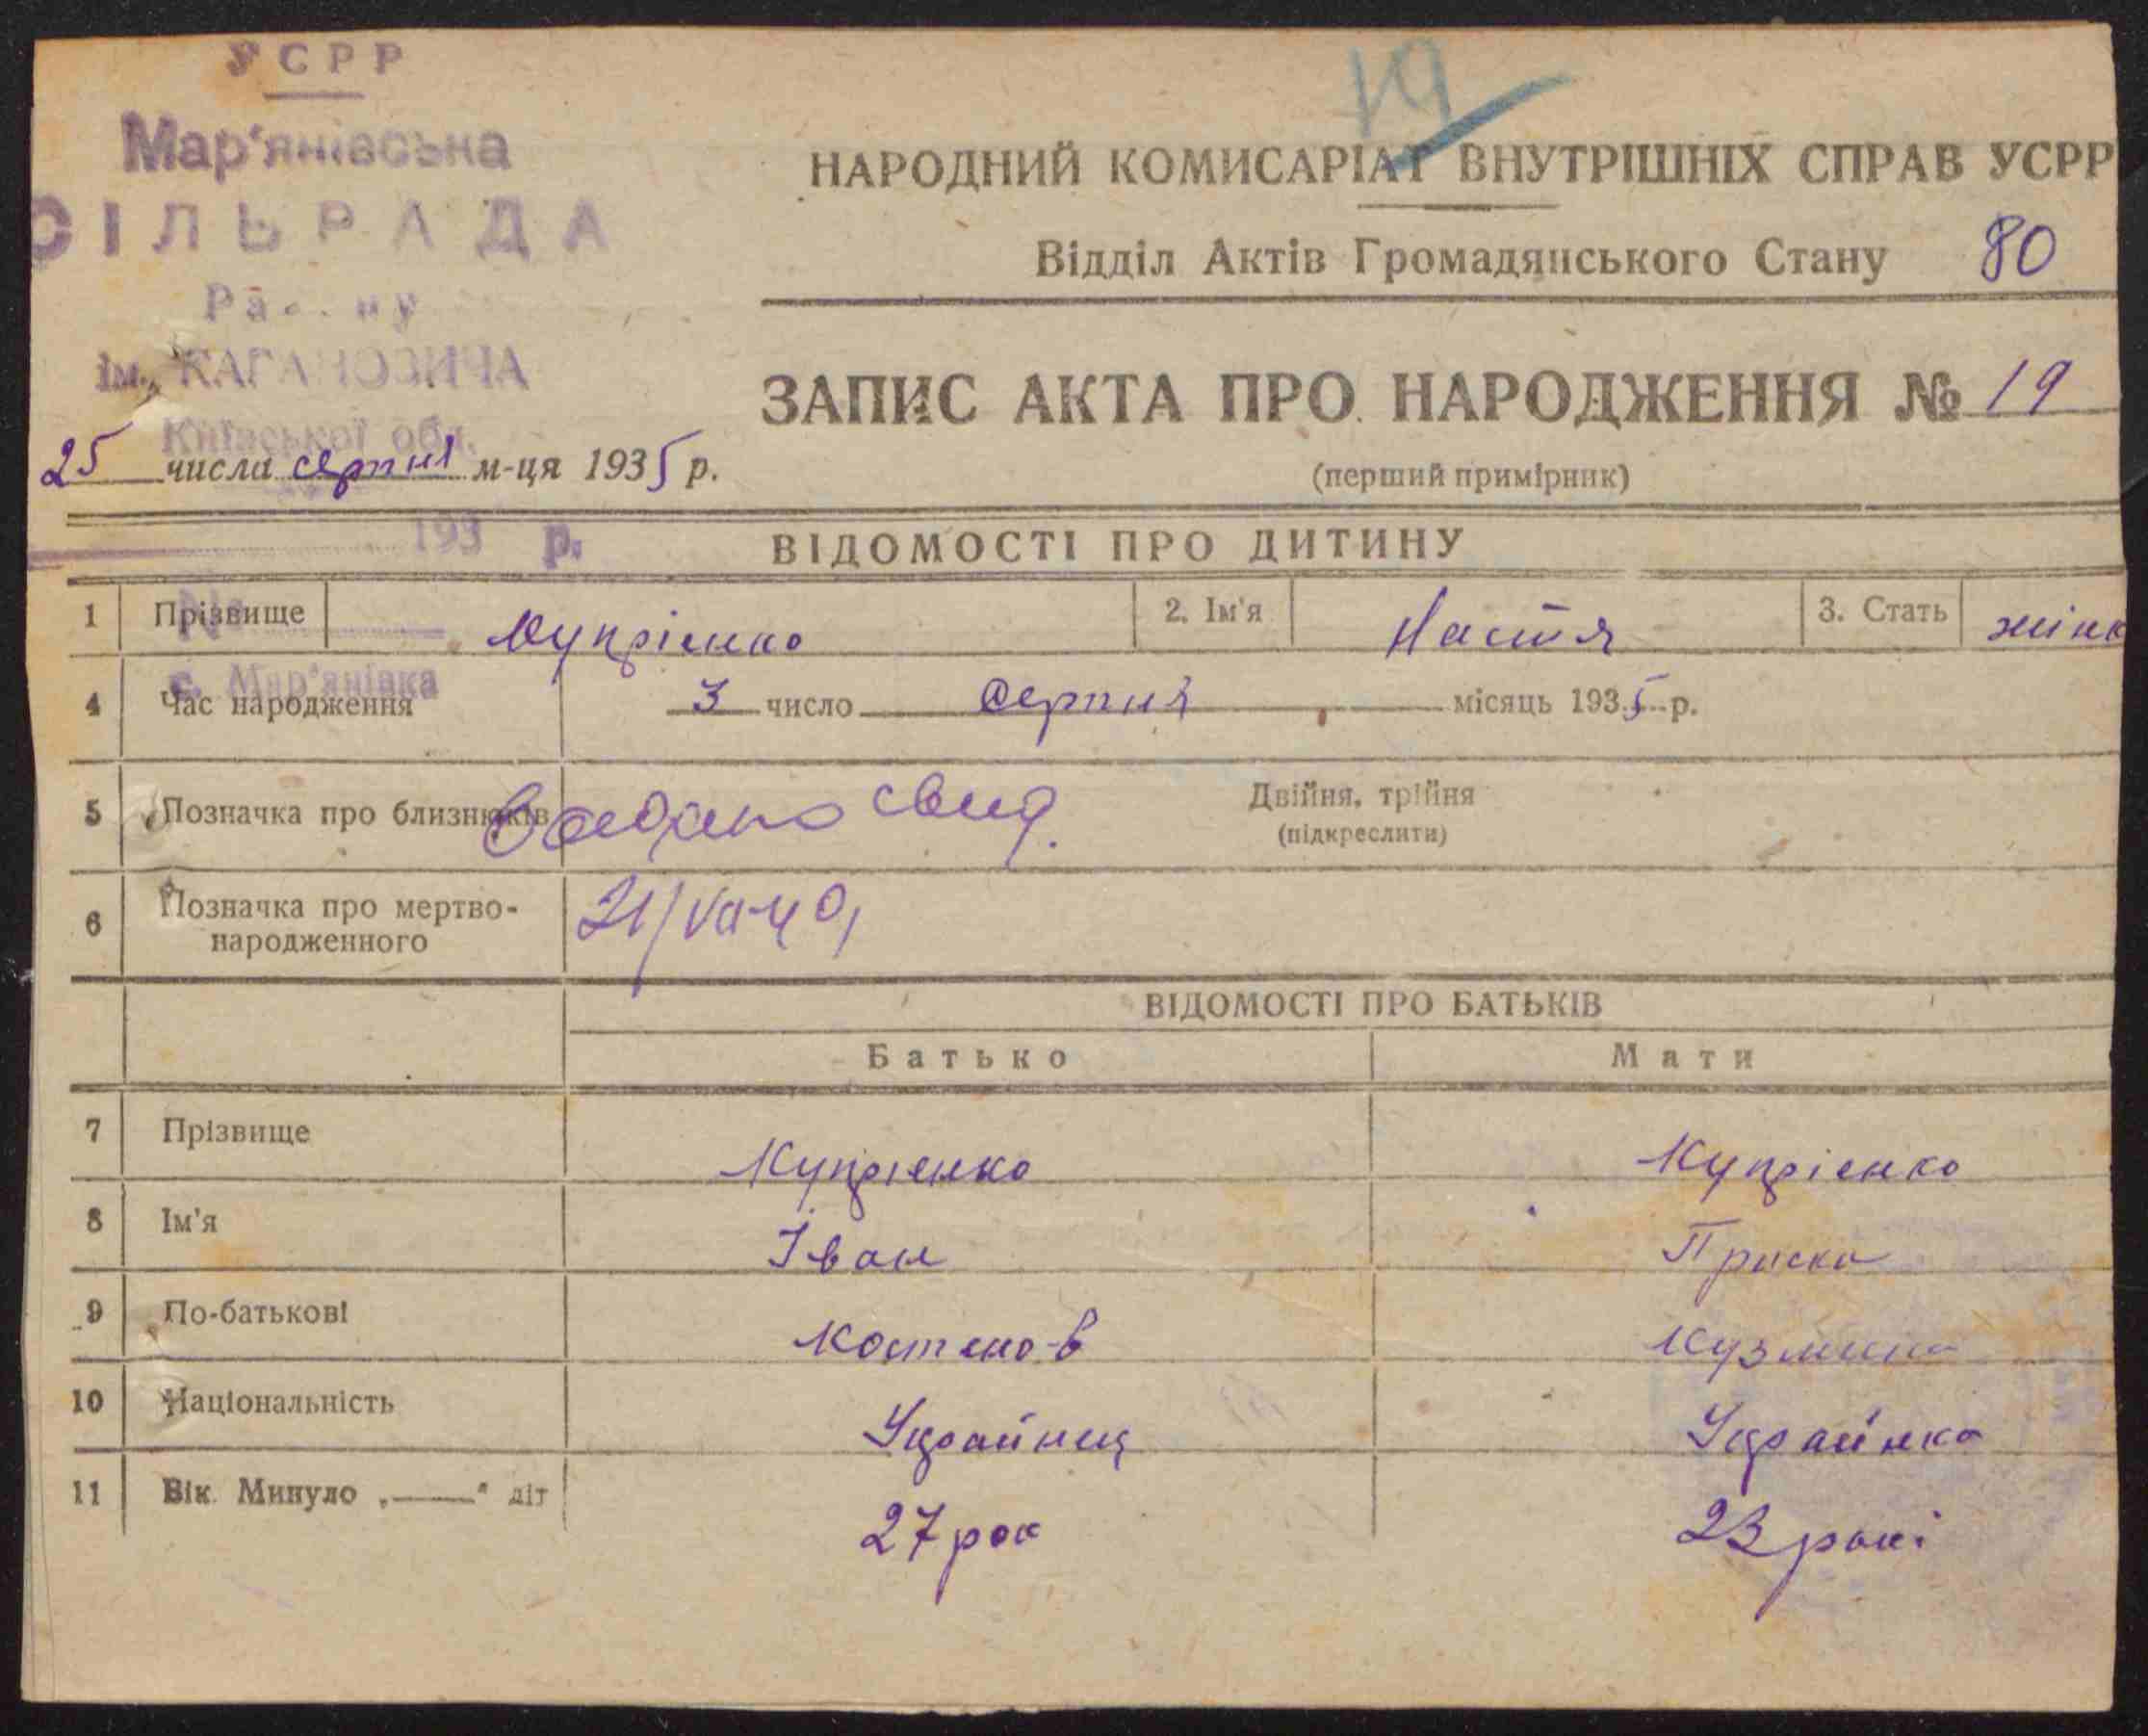 УСРР
Мар'янівська
СІЛЬРАДА
Району
ім. КАГАНОВИЧА
Київської обл.
193 р.
№
с. Мар'янівка
19
НАРОДНИЙ КОМИСАРІАТ ВНУТРІШНІХ СПРАВ УСРР
Відділ Актів Громадянського Стану 80
ЗАПИС АКТА ПРО НАРОДЖЕННЯ № 19
(перший примірник)
25 числа серпня м-ця 1935 р.
ВІДОМОСТІ ПРО ДИТИНУ
1 Прізвище Купрієнко 2. Ім'я Настя 3. Стать жінк
4 Час народження 3 число Серпня місяць 1935 р.
5 Позначка про близнюків свид. Двійня, трійня
(підкреслити)
6 Позначка про мертво-
народженного
ВІДОМОСТІ ПРО БАТЬКІВ
Батько Мати
7 Прізвище Купрієнко Купрієнко
8 Ім'я Іван Приска
9 По-батькові
10 Національність Українец Українка
11 Вік. Минуло „——“ літ 27 рок 23 рокі